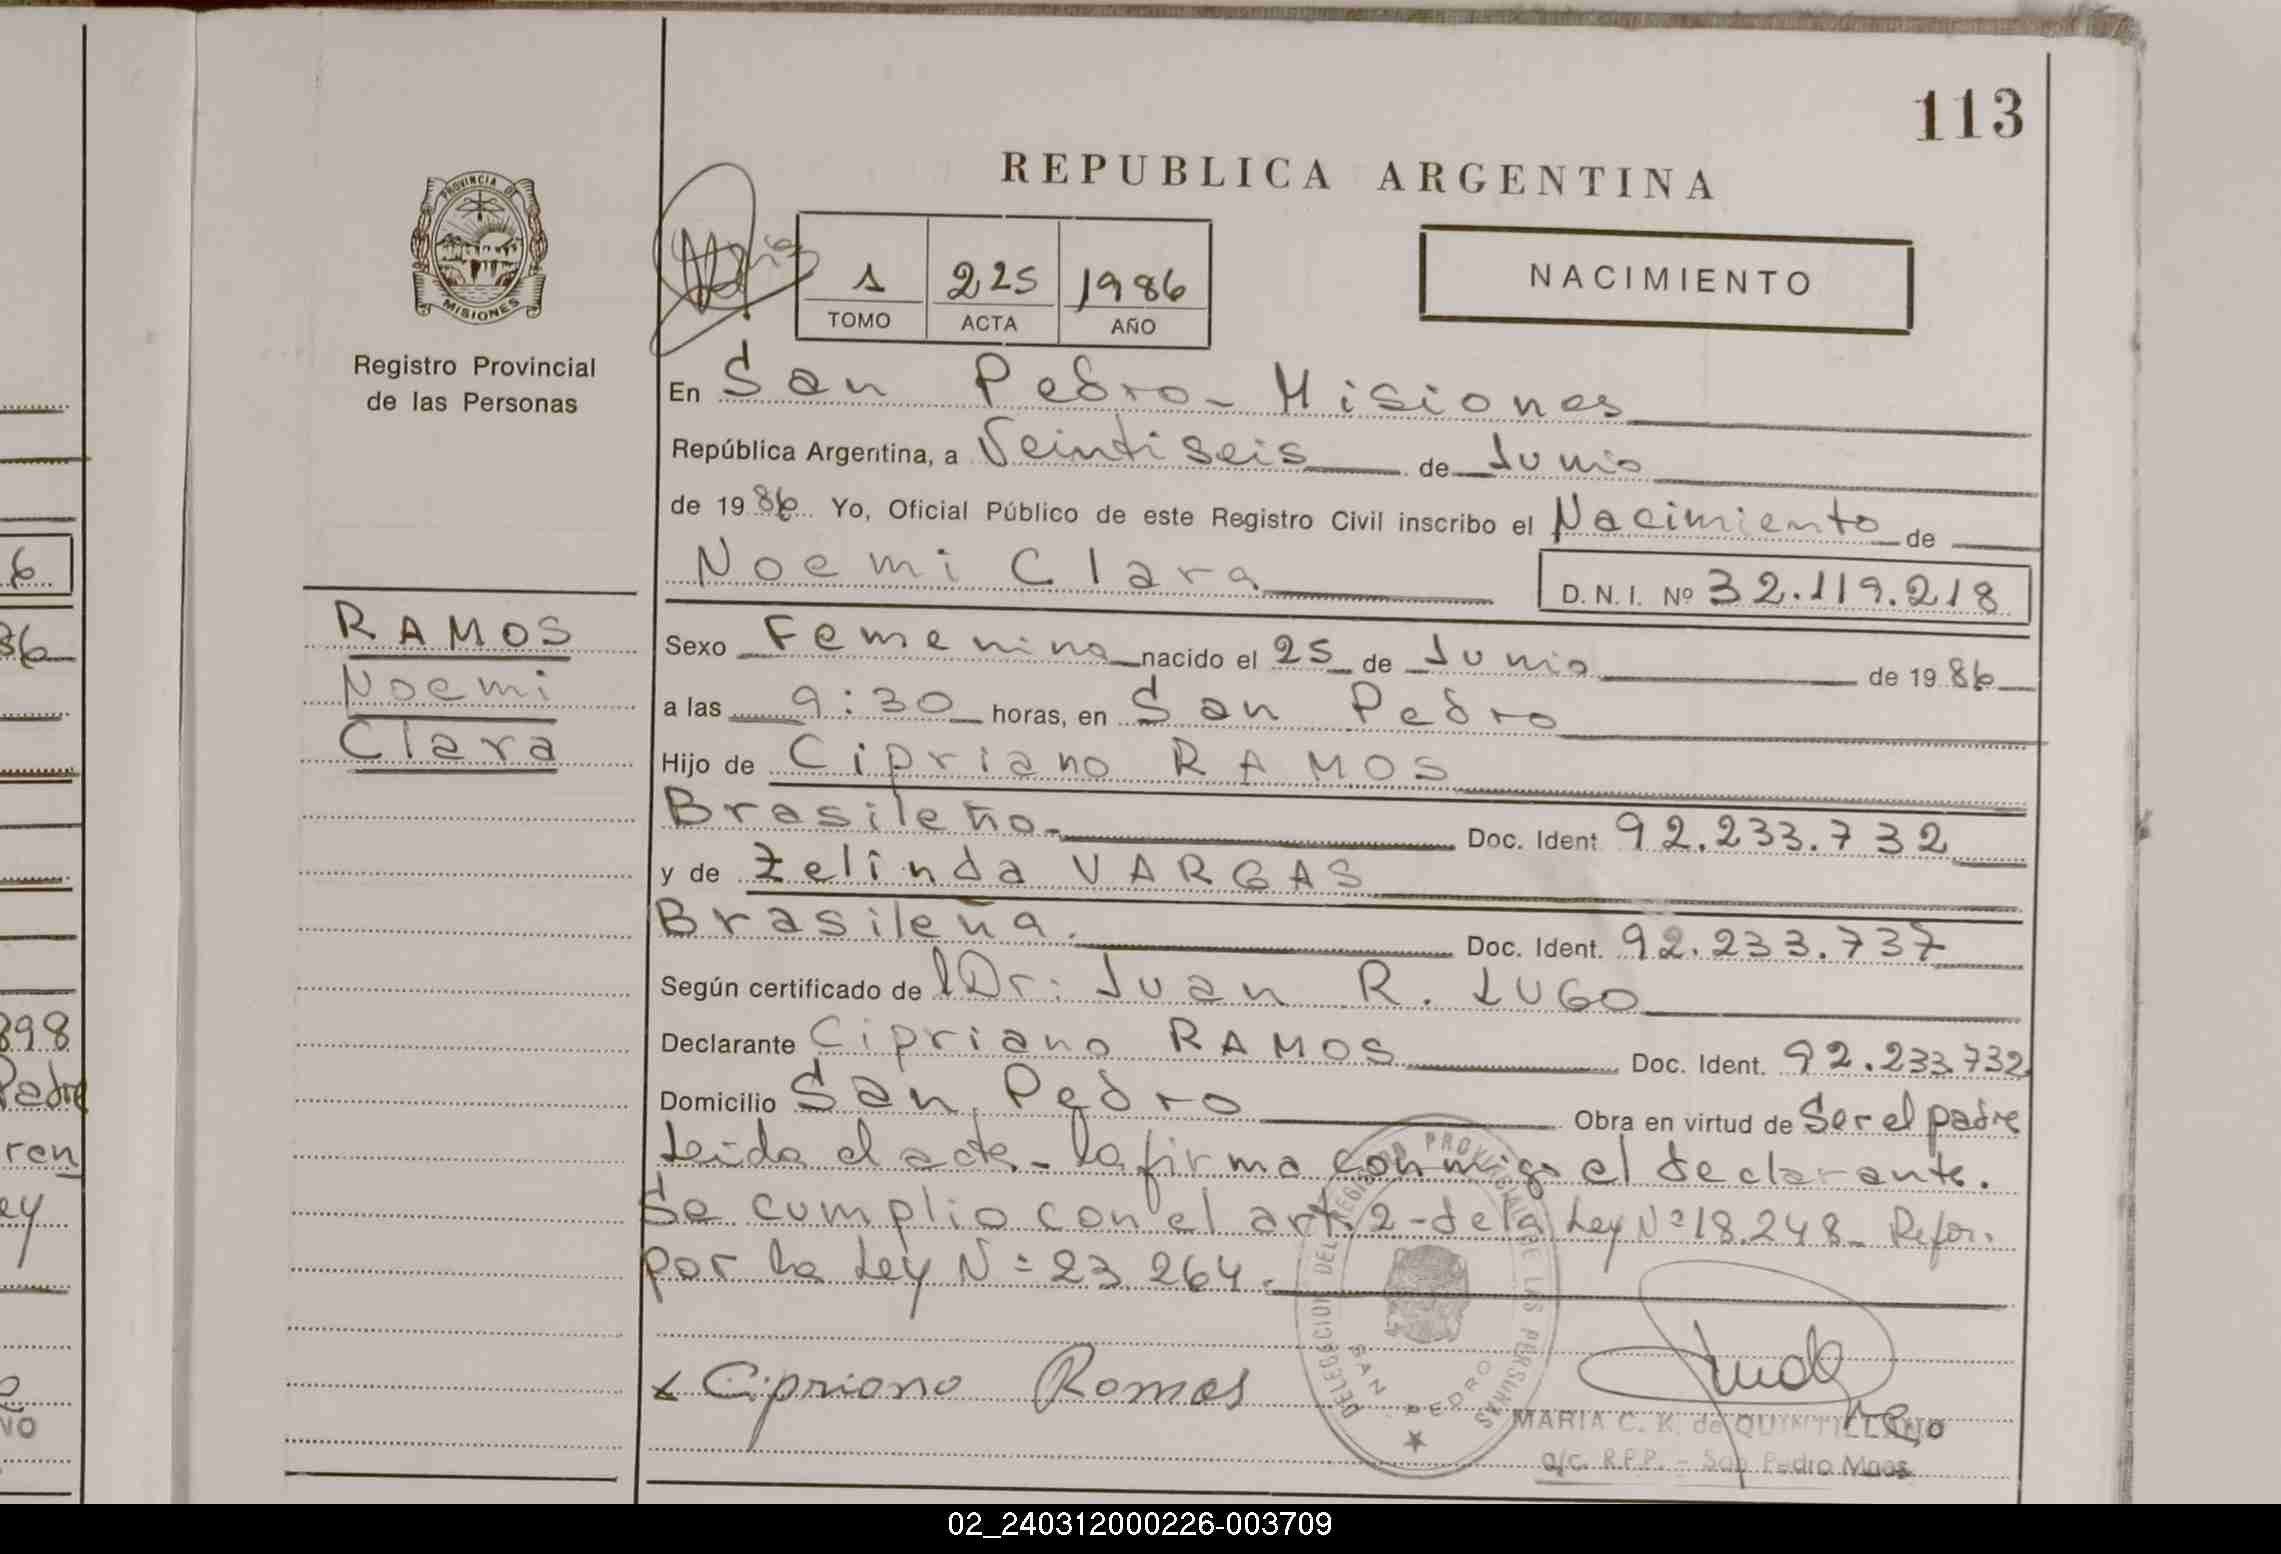 113
REPUBLICA ARGENTINA
PROVINCIA DE
MISIONES
Registro Provincial
de las Personas
1 225 1986
TOMO ACTA AÑO
NACIMIENTO
En San Pedro - Misiones
República Argentina, a Veintiseis de Junio
de 1986. Yo, Oficial Público de este Registro Civil inscribo el Nacimiento de
Noemi Clara D.N.I. Nº 32.119.218
RAMOS
Noemi
Clara
Sexo Femenino nacido el 25 de Junio de 1986
a las 9:30 horas, en San Pedro
Hijo de Cipriano RAMOS
Brasileño. Doc. Ident 92.233.732
y de Zelinda VARGAS
Brasileña. Doc. Ident. 92.233.737
Según certificado de Dr. Juan R. LUGO
Declarante Cipriano RAMOS Doc. Ident. 92.233.732
Domicilio San Pedro Obra en virtud de Ser el padre
Leida el acta - la firma conmigo el declarante.
Se cumplio con el art. 2 - de la Ley Nº 18.248 - Refor.
por la Ley Nº 23.264.
x Cipriano Ramos
DELEGACION DEL REGISTRO PROVINCIAL DE LAS PERSONAS
SAN PEDRO
MARIA C. K. de QUINTILLANO
a/c. R.P.P. - San Pedro Mnes.
6
86
898
Padre
ren
ey
ÑO
02_240312000226-003709